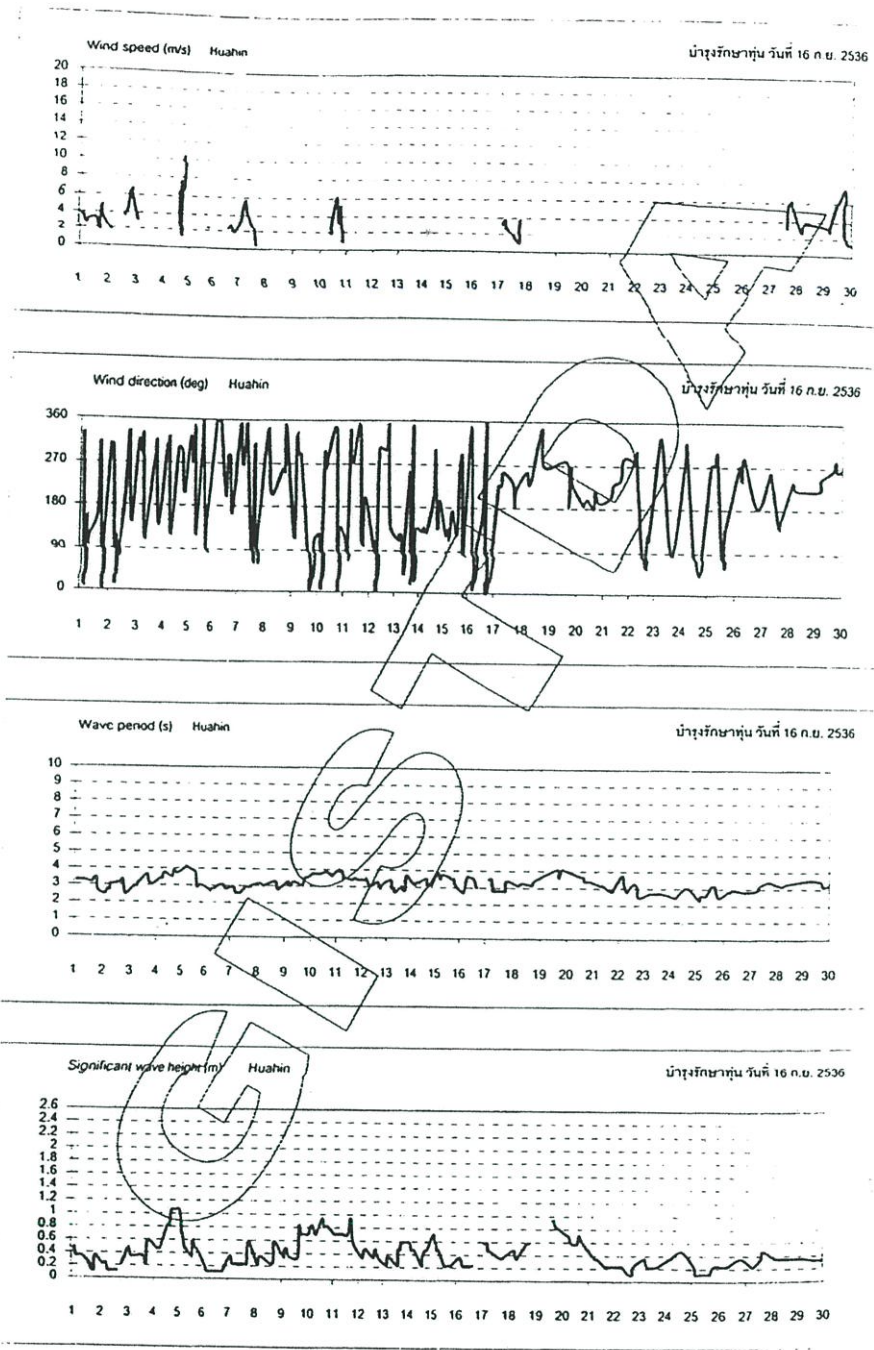 Wind speed (m/s) Huahin บำรุงรักษาทุ่น วันที่ 16 ก.ย. 2536
20
18
16
14
12
10
8
6
4
2
0
1 2 3 4 5 6 7 8 9 10 11 12 13 14 15 16 17 18 19 20 21 22 23 24 25 26 27 28 29 30
Wind direction (deg) Huahin บำรุงรักษาทุ่น วันที่ 16 ก.ย. 2536
360
270
180
90
0
1 2 3 4 5 6 7 8 9 10 11 12 13 14 15 16 17 18 19 20 21 22 23 24 25 26 27 28 30
Wave period (s) Huahin บำรุงรักษาทุ่น วันที่ 16 ก.ย. 2536
10
9
8
7
6
5
4
3
2
1
0
1 2 3 4 5 6 7 8 9 10 11 12 13 14 15 16 17 18 19 20 21 22 23 24 25 26 27 28 29 30
Significant wave height (m) Huahin บำรุงรักษาทุ่น วันที่ 16 ก.ย. 2536
2.6
2.4
2.2
2
1.8
1.6
1.4
1.2
1
0.8
0.6
0.4
0.2
0
1 2 3 4 5 6 7 8 9 10 11 12 13 14 15 16 17 18 19 20 21 22 23 24 25 26 27 28 29 30
GISTDA